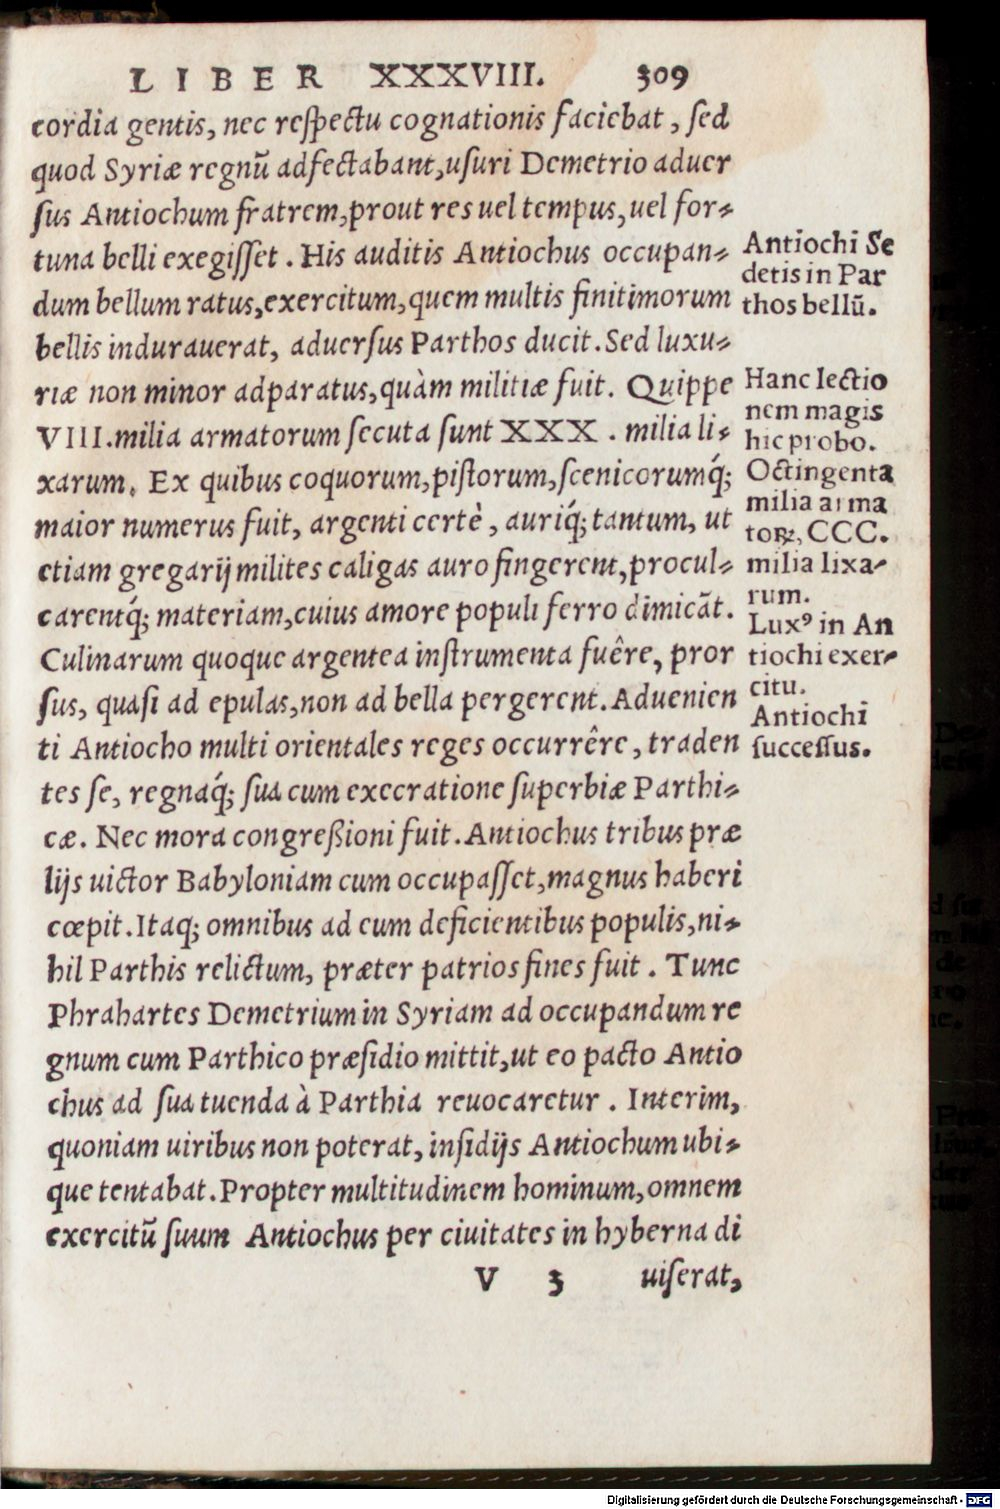 LIBER XXXVIII. 309
cordia gentis, nec respectu cognationis faciebat, sed
quod Syriæ regnū adfectabant, usuri Demetrio aduer
sus Antiochum fratrem, prout res uel tempus, uel for-
tuna belli exegisset. His auditis Antiochus occupan-
dum bellum ratus, exercitum, quem multis finitimorum
bellis indurauerat, aduersus Parthos ducit. Sed luxu-
riæ non minor adparatus, quàm militiæ fuit. Quippe
VIII. milia armatorum secuta sunt XXX. milia li-
xarum. Ex quibus coquorum, pistorum, scenicorumq́;
maior numerus fuit, argenti certè, auriq́; tantum, ut
etiam gregarij milites caligas auro fingerent, procul-
carentq́; materiam, cuius amore populi ferro dimicāt.
Culinarum quoque argentea instrumenta fuêre, pror
sus, quasi ad epulas, non ad bella pergerent. Aduenien
ti Antiocho multi orientales reges occurrêre, traden
tes se, regnaq́; sua cum execratione superbiæ Parthi-
cæ. Nec mora congreßioni fuit. Antiochus tribus præ
lijs uictor Babyloniam cum occupasset, magnus haberi
cœpit. Itaq; omnibus ad eum deficientibus populis, ni-
hil Parthis relictum, præter patrios fines fuit. Tunc
Phrahartes Demetrium in Syriam ad occupandum re
gnum cum Parthico præsidio mittit, ut eo pacto Antio
chus ad sua tuenda à Parthia reuocaretur. Interim,
quoniam uiribus non poterat, insidijs Antiochum ubi-
que tentabat. Propter multitudinem hominum, omnem
exercitū suum Antiochus per ciuitates in hyberna di
V 3 uiserat,
Antiochi Se
detis in Par
thos bellū.
Hanc lectio
nem magis
hic probo.
Octingenta
milia arma
toꝝ, CCC.
milia lixa-
rum.
Luxꝰ in An
tiochi exer-
citu.
Antiochi
successus.
Digitalisierung gefördert durch die Deutsche Forschungsgemeinschaft - DFG